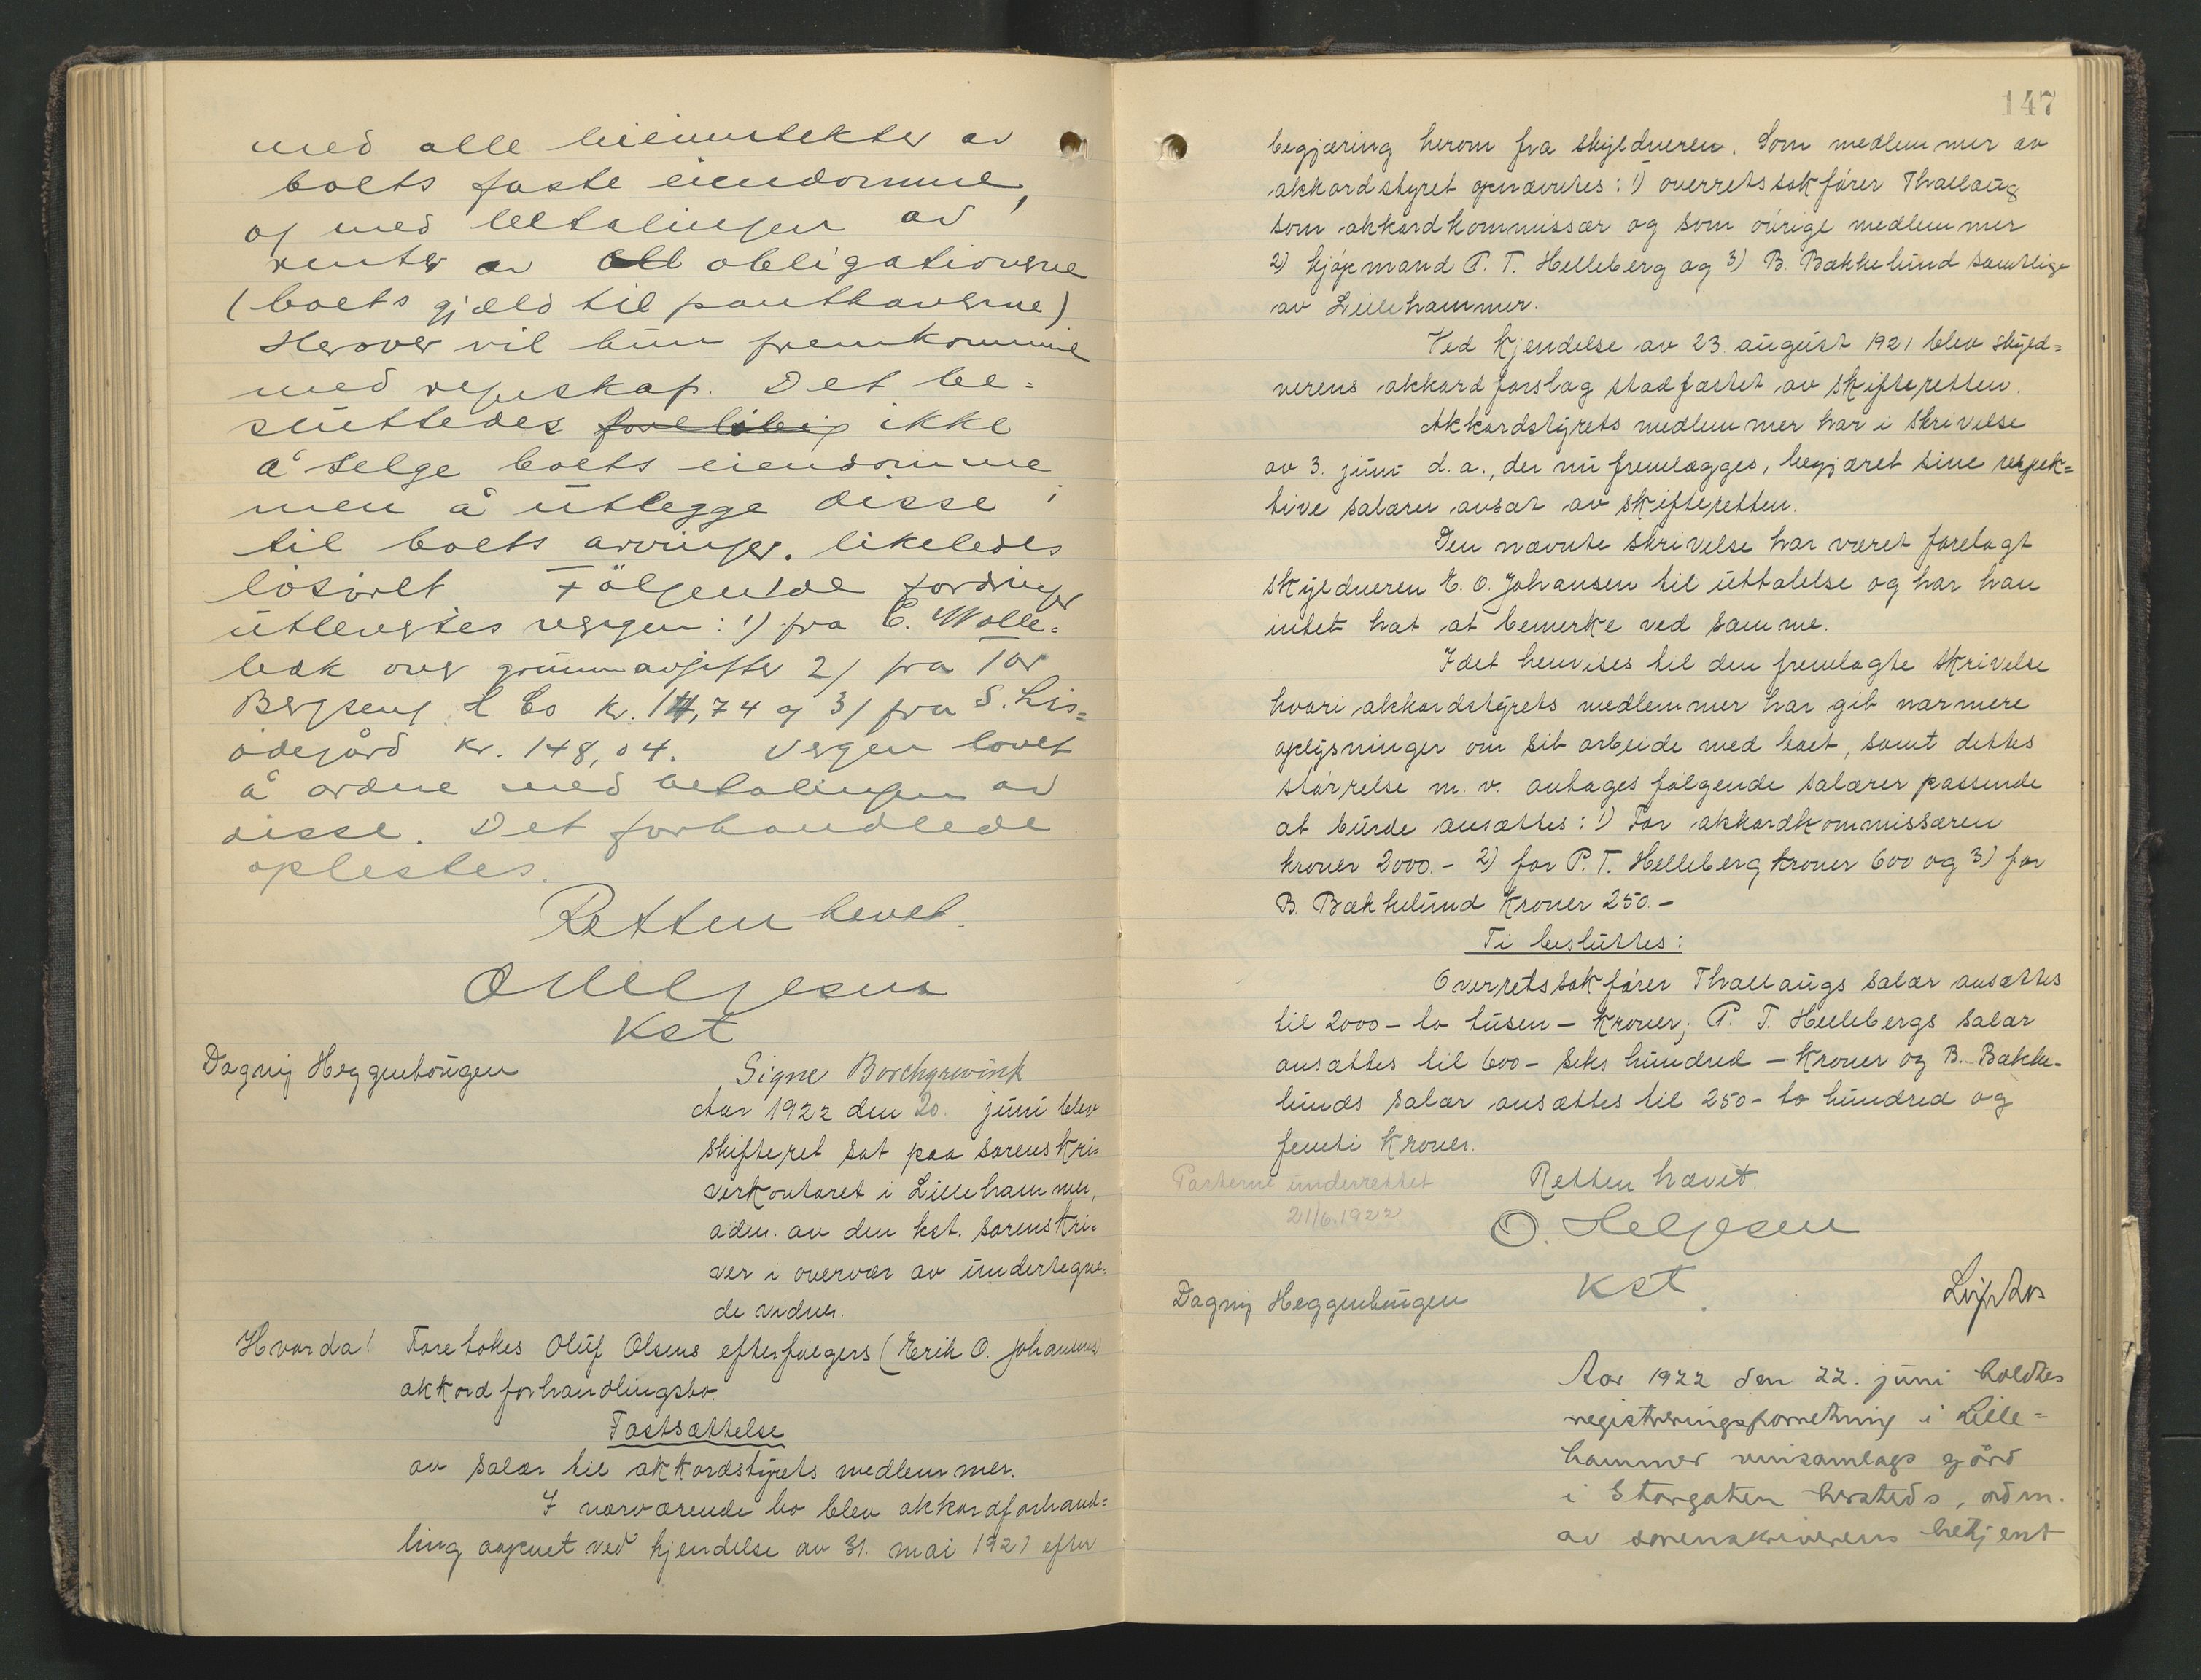 med alle heieinntekter av
boets faste eiendomme,
og med utbetalingen av
renter av obligationerne
(boets gjæld til panthaverne)
Herover vil hun fremkomme
med regnskap. Det be=
sluttedes foreløbig ikke
å selge boets eiendomme
men å utlegge disse i
til boets arvinger. likeledes
løsöret Følgende fordringer
utlevertes vergen: 1) fra C. Molle=
bæk over grunnavgifter 2) fra Tor
Bergseng & Co kr. 14,74 og 3) fra S. Lis=
ødegård kr. 148,04. Vergen lovet
å ordne med betalingen av
disse. Det forhandlede
oplestes.
Retten hevet.
O Helgesen
Kst
Dagny Heggenhougen
Signe Borchgrevink
Aar 1922 den 20. juni blev
skifteret sat paa sorenskri=
verkontoret i Lillehammer,
adm. av den kst. sorenskri=
ver i overvær av undertegne=
de vidner.
Hvorda! Foretokes Oluf Olsens efterfølgers (Erik O. Johansens)
akkordforhandlingsbo.
Fastsættelse
av salær til akkordstyrets medlemmer.
I nærværende bo blev akkordforhand=
ling aapnet ved kjendelse av 31. mai 1921 efter
147
begjæring herom fra skyldneren. Som medlemmer av
akkordstyret opnævntes: 1) overretssakfører Thallaug
som akkordkommissær og som øvrige medlemmer
2) kjøpmand P. T. Helleberg og 3) B. Bækkelund samtlige
av Lillehammer.
Ved kjendelse av 23. august 1921 blev skyld=
nerens akkordforslag stadfæstet av skifteretten.
Akkordstyrets medlemmer har i skrivelse
av 3. juni d. a., der nu fremlægges, begjæret sine respek=
tive salærer ansat av skifteretten.
Den nævnte skrivelse har været forelagt
skyldneren E. O. Johansen til uttalelse og har han
intet hat at bemerke ved samme.
Idet henvises til den fremlagte skrivelse
hvori akkordstyrets medlemmer har git nærmere
oplysninger om sit arbeide med boet, samt dettes
størrelse m. v. antages følgende salærer passende
at burde ansættes: 1) For akkordkommissæren
kroner 2000.- 2) for P. T. Helleberg kroner 600 og 3) for
B. Bækkelund kroner 250.-
Ti besluttes:
Overretssakfører Thallaugs salær ansættes
til 2000 - to tusen - kroner, P. T. Hellebergs salær
ansættes til 600 - seks hundred - kroner og B. Bække-
lunds salær ansættes til 250 - to hundred og
femti kroner.
Parterne underrettet Retten hævet.
21/6.1922
O. Helgesen
Kst.
Dagny Heggenhougen
Aar 1922 den 22. juni holdtes
registreringsforretning i Lille=
hammer vinsamlags gård
i Storgaten hersteds, adm.
av sorenskriverens betjent